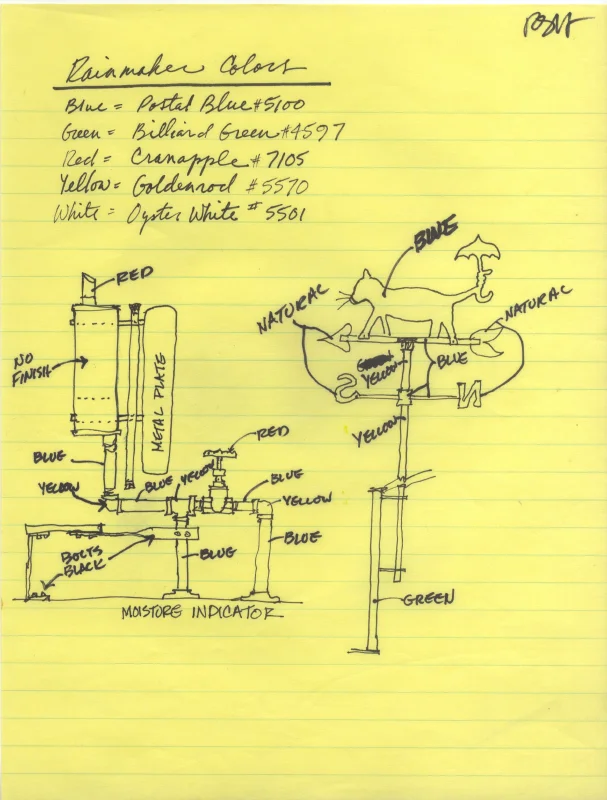 Rainmaker Colors
Blue = Postal Blue #5100
Green = Billiard Green #4597
Red = Cranapple #7105
Yellow = Goldenrod #5570
White = Oyster White #5501
BLUE
RED
NATURAL
NATURAL
NO
FINISH
METAL PLATE
GREEN
YELLOW
BLUE
S
N
YELLOW
RED
BLUE
YELLOW
BLUE
YELLOW
BLUE
YELLOW
BOLTS
BLACK
BLUE
BLUE
GREEN
MOISTURE INDICATOR